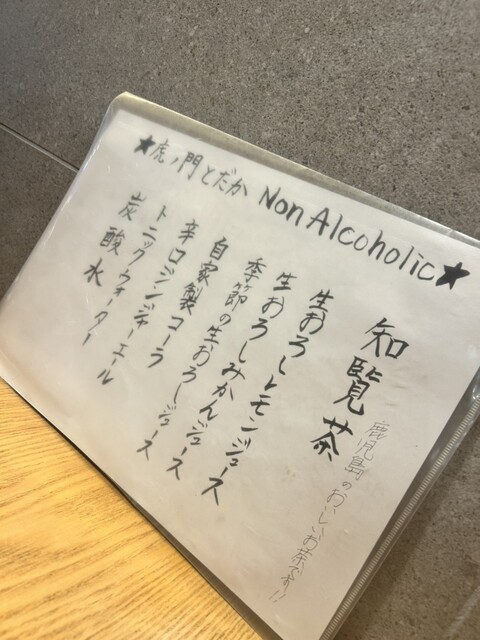 ★虎ノ門とだか Non Alcoholic★
知覧茶
鹿児島のおいしいお茶です!!
生おろしレモンジュース
生おろしみかんジュース
季節の生おろしジュース
自家製コーラ
辛口ジンジャーエール
トニックウォーター
炭酸水